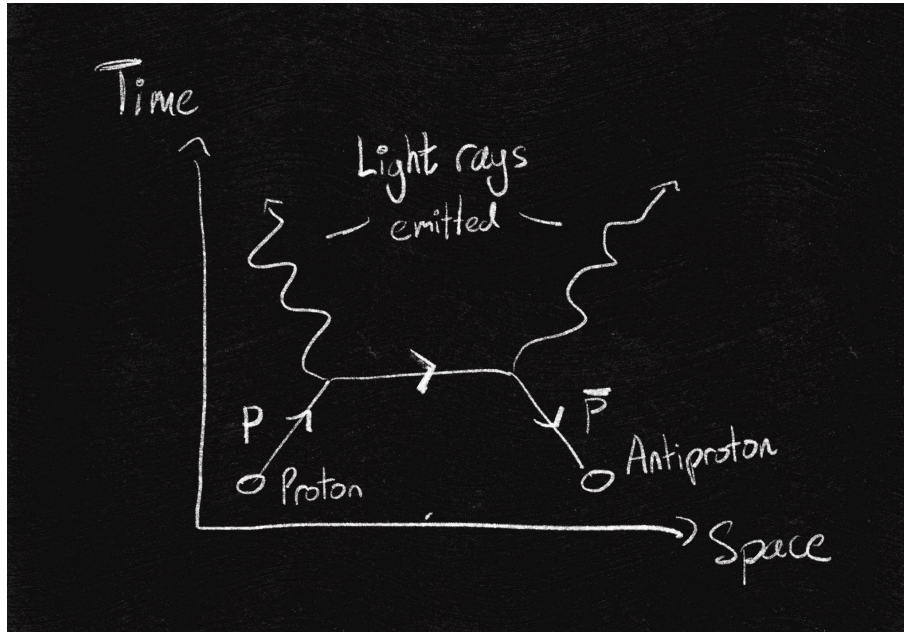 Time
Light rays
emitted
P
P̅
Proton
Antiproton
Space